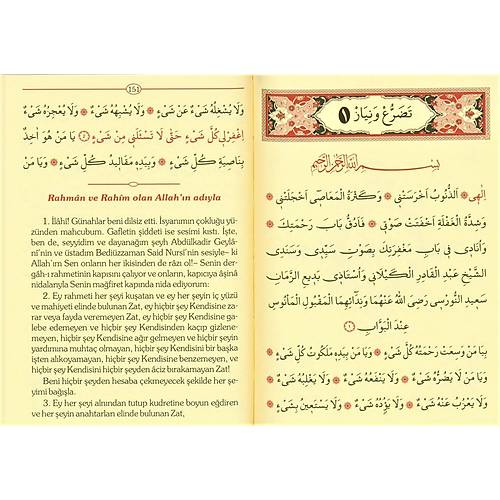 تَضَرُّعْ وَنِيَازْ ١
بِسْمِ اللّٰهِ الرَّحْمٰنِ الرَّحِيمِ
اِلٰهِى ❁ اَلذُّنُوبُ اَخْرَسَتْنِى ❁ وَكَثْرَةُ الْمَعَاصِى اَخْجَلَتْنِى ❁
وَشِدَّةُ الْغَفْلَةِ اَخْفَتَتْ صَوْتِى ❁ فَاَدُقُّ بَابَ رَحْمَتِكَ ❁
وَاُنَادِى فِى بَابِ مَغْفِرَتِكَ بِصَوْتِ سَيِّدِى وَسَنَدِى
الشَّيْخِ عَبْدِ الْقَادِرِ الْكَيْلَانِى وَاُسْتَاذِى بَدِيعِ الزَّمَانِ
سَعِيدِ النُّورْسِى رَضِىَ اللّٰهُ عَنْهُمَا وَنِدَائِهِمَا الْمَقْبُولِ الْمَأْنُوسِ
عِنْدَ الْبَوَّابِ ١
يَا مَنْ وَسِعَتْ رَحْمَتُهُ كُلَّ شَىْءٍ ❁ وَيَا مَنْ بِيَدِهِ مَلَكُوتُ كُلِّ شَىْءٍ ❁
وَيَا مَنْ لَا يَضُرُّهُ شَىْءٌ ❁ وَلَا يَنْفَعُهُ شَىْءٌ ❁ وَلَا يَغْلِبُهُ شَىْءٌ ❁
وَلَا يَعْزُبُ عَنْهُ شَىْءٌ ❁ وَلَا يَؤُدُهُ شَىْءٌ ❁ وَلَا يَسْتَعِينُ بِشَىْءٍ ❁
151
وَلَا يُشْغِلُهُ شَىْءٌ عَنْ شَىْءٍ ❁ وَلَا يُشْبِهُهُ شَىْءٌ ❁ وَلَا يُعْجِزُهُ شَىْءٌ
اِغْفِرْ لِى كُلَّ شَىْءٍ حَتّٰى لَا تَسْئَلَنِى مِنْ شَىْءٍ ٢ يَا مَنْ هُوَ اٰخِذٌ
بِنَاصِيَةِ كُلِّ شَىْءٍ ❁ وَبِيَدِهِ مَقَالِيدُ كُلِّ شَىْءٍ ❁ وَيَا مَنْ
Rahmân ve Rahîm olan Allah'ın adıyla
1. İlâhî! Günahlar beni dilsiz etti. İsyanımın çokluğu yü-
zünden mahcubum. Gafletin şiddeti ise sesimi kıstı. İşte,
ben de, seyyidim ve dayanağım şeyh Abdülkadir Geylâ-
nî'nin ve üstadım Bediüzzaman Said Nursî'nin sesiyle– ki
Allah'ım Sen onların ikisinden de râzı ol!– Senin der-
gâh-ı rahmetinin kapısını çalıyor ve onların, kapıcıya âşina
nidalarıyla Senin mağfiret kapında nida ediyorum:
2. Ey rahmeti her şeyi kuşatan ve ey her şeyin iç yüzü
ve mahiyeti elinde bulunan Zat, ey hiçbir şey Kendisine za-
rar veya fayda veremeyen Zat, ey hiçbir şey Kendisine ga-
lebe edemeyen ve hiçbir şey Kendisinden kaçıp gizlene-
meyen, hiçbir şey Kendisine ağır gelmeyen ve hiçbir şeyin
yardımına muhtaç olmayan, hiçbir şey Kendisini bir başka
işten alıkoymayan, hiçbir şey Kendisine benzemeyen, ve
hiçbir şey Kendisini hiçbir şeyden âciz bırakamayan Zat!
Beni hiçbir şeyden hesaba çekmeyecek şekilde her şe-
yimi bağışla.
3. Ey her şeyi alnından tutup kudretine boyun eğdiren
ve her şeyin anahtarları elinde bulunan Zat,